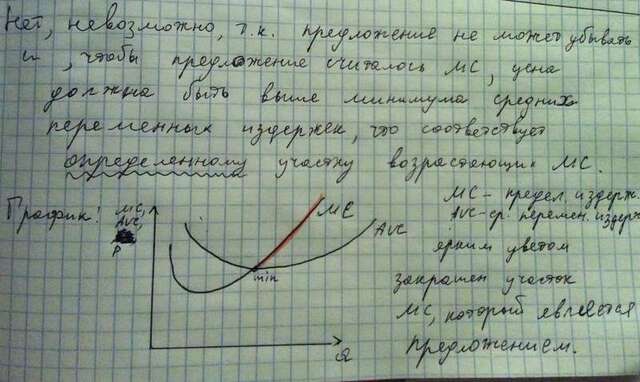 Нет, невозможно, т.к. предложение не может убывать
и, чтобы предложение считалось MC, цена
должна быть выше минимума средних
переменных издержек, что соответствует
определенному участку возрастающих MC.
График:
MC,
AVC,
P
MC
AVC
min
Q
MC - предел. издерж.
AVC - ср. перемен. издерж.
ярким цветом
закрашен участок
MC, который является
предложением.